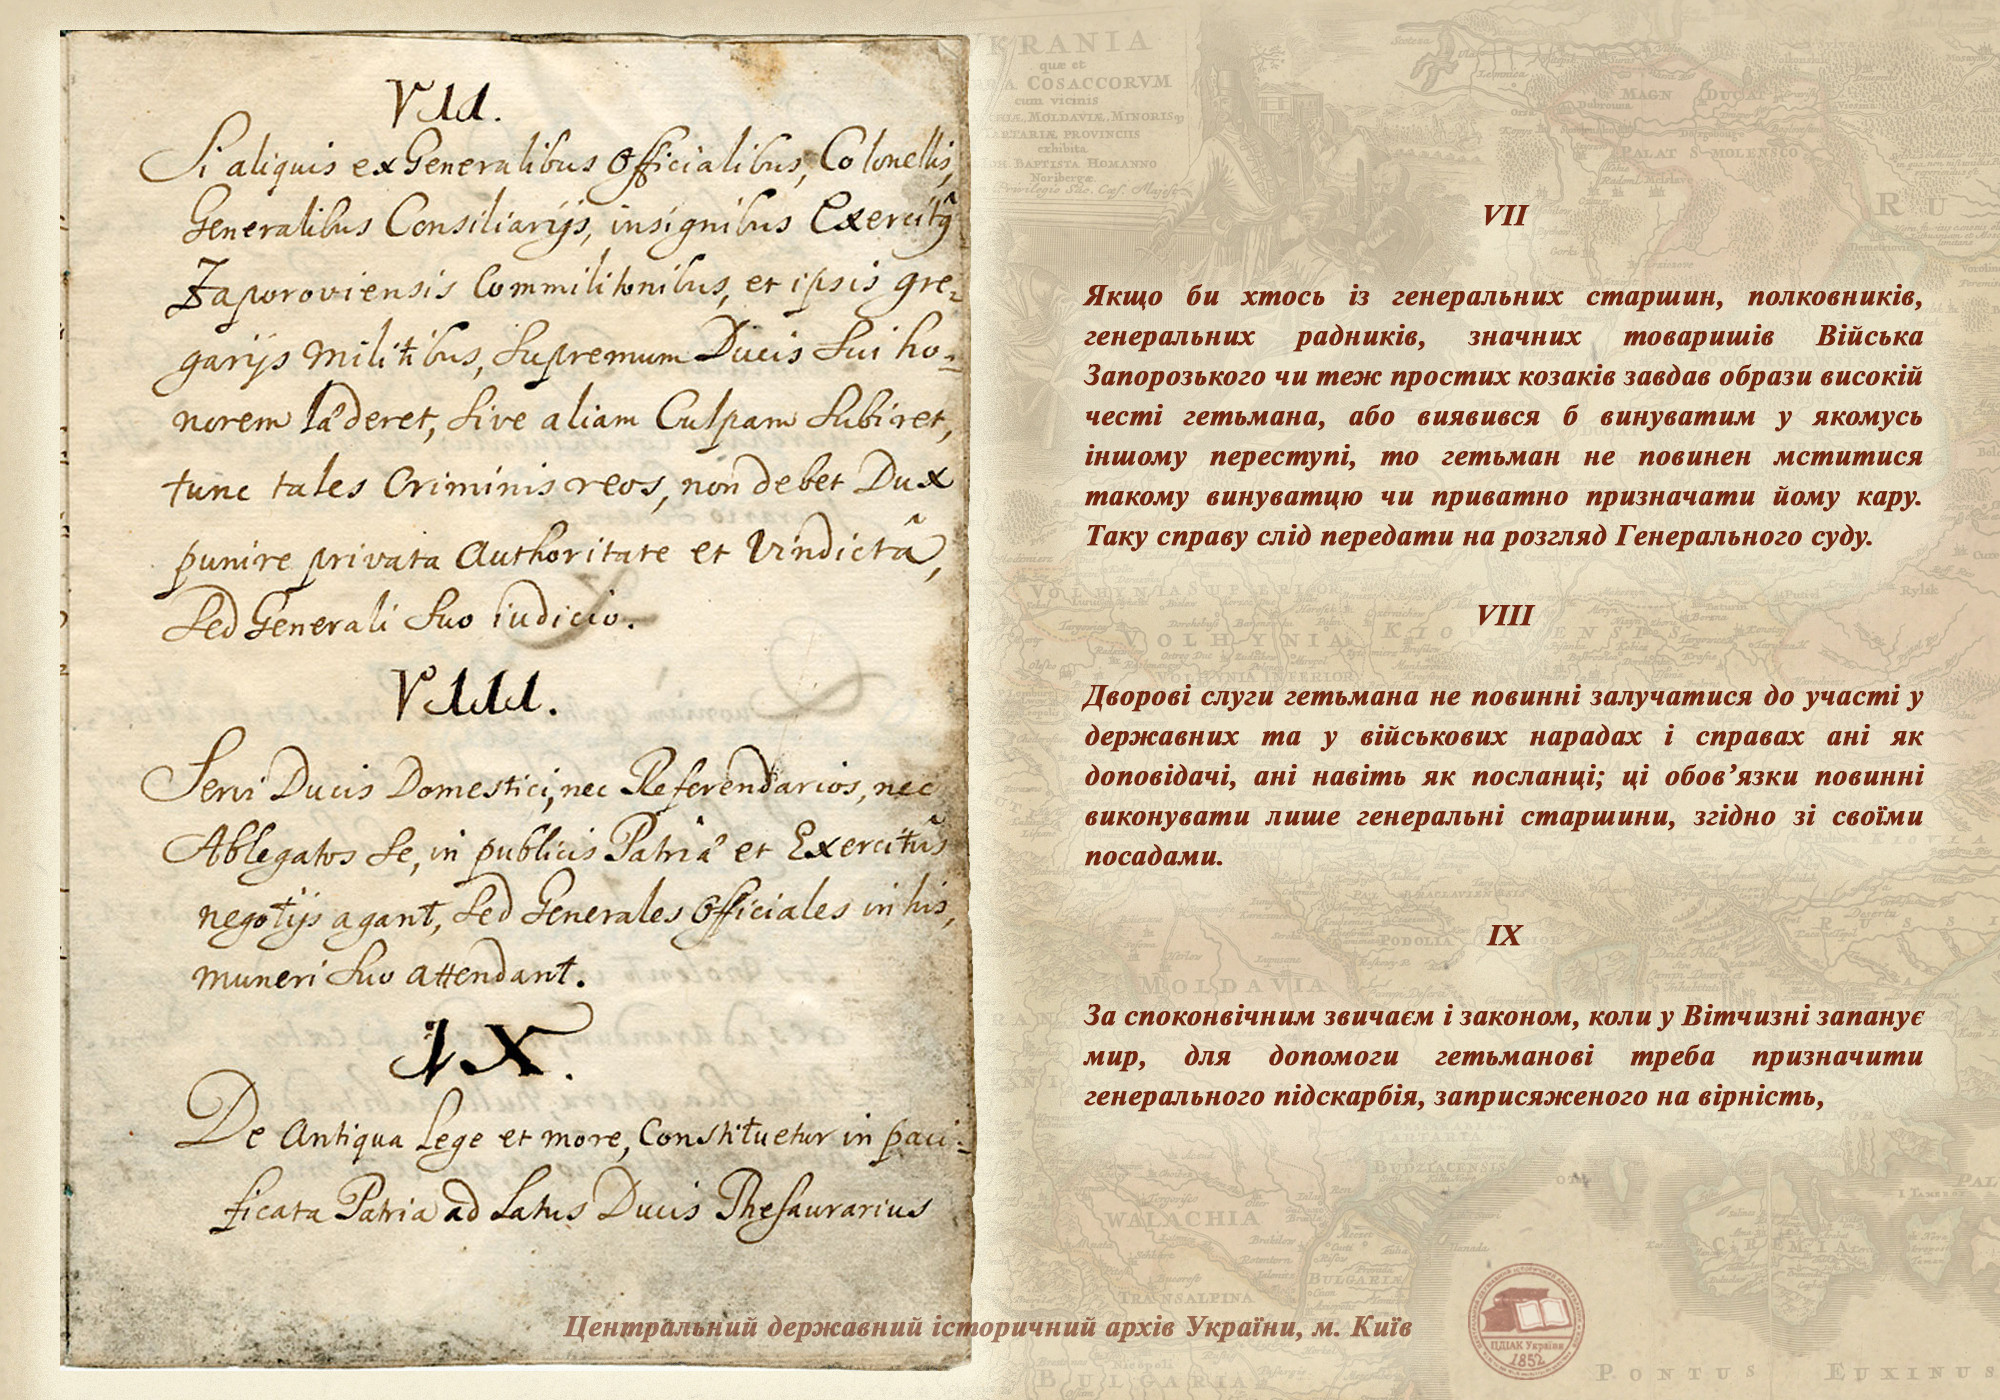 VII.
Si aliquis ex Generalibus Officialibus, Colonellis,
Generalibus Consiliarijs, insignibus Exercitûs
Zaporoviensis Commilitonibus, et ipsis gre-
garijs Militibus, Supremum Ducis Sui ho-
norem læderet, Sive aliam Culpam Subiret,
tunc tales Criminis reos, non debet Dux
punire privata Authoritate et Vindictâ,
Sed Generali Suo iudicio.
VIII.
Servi Ducis Domestici, nec Referendarios, nec
Ablegatos Se, in publicis Patriæ et Exercitûs
negotijs agant, Sed Generales Officiales in his,
muneri Suo attendant.
IX.
De Antiqua Lege et more, Constituetur in paci-
ficata Patria ad Latus Ducis Thesaurarius
VII
Якщо би хтось із генеральних старшин, полковників,
генеральних радників, значних товаришів Війська
Запорозького чи теж простих козаків завдав образи високій
честі гетьмана, або виявився б винуватим у якомусь
іншому переступі, то гетьман не повинен мститися
такому винуватцю чи приватно призначати йому кару.
Таку справу слід передати на розгляд Генерального суду.
VIII
Дворові слуги гетьмана не повинні залучатися до участі у
державних та у військових нарадах і справах ані як
доповідачі, ані навіть як посланці; ці обов’язки повинні
виконувати лише генеральні старшини, згідно зі своїми
посадами.
IX
За споконвічним звичаєм і законом, коли у Вітчизні запанує
мир, для допомоги гетьманові треба призначити
генерального підскарбія, заприсяженого на вірність,
Центральний державний історичний архів України, м. Київ
ЦДІАК України
1852
KRANIA
quæ et
COSACCORVM
cum vicinis
MOLDAVIÆ, MINORIS,
TARTARIÆ PROVINCIIS
exhibita
BAPTISTA HOMANNO
Noribergæ
MAGN DUCAT
PALAT S-MOLENSCO
RU
VOLHYNIA SUPERIOR
VOLHYNIA
KIOVIENSIS
VOLHYNIA INFERIOR
PODOLIA
MOLDAVIA
BUDZIACENSIS
WALACHIA
CREMIA
TRANSALPINA
BULGARIÆ
Nicopoli
BULGARIA
PONTUS EUXINUS